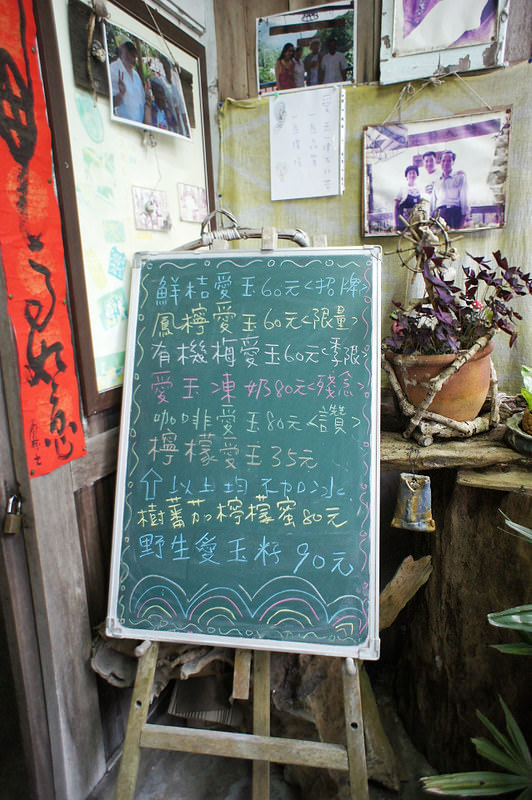 鮮桔愛玉60元<招牌>
鳳檸愛玉60元<限量>
有機梅愛玉60元<季限>
愛玉凍奶80元<殘念>
咖啡愛玉80元<讚>
檸檬愛玉35元
⇧以上均不加冰
樹蕃茄檸檬蜜80元
野生愛玉籽90元
如意